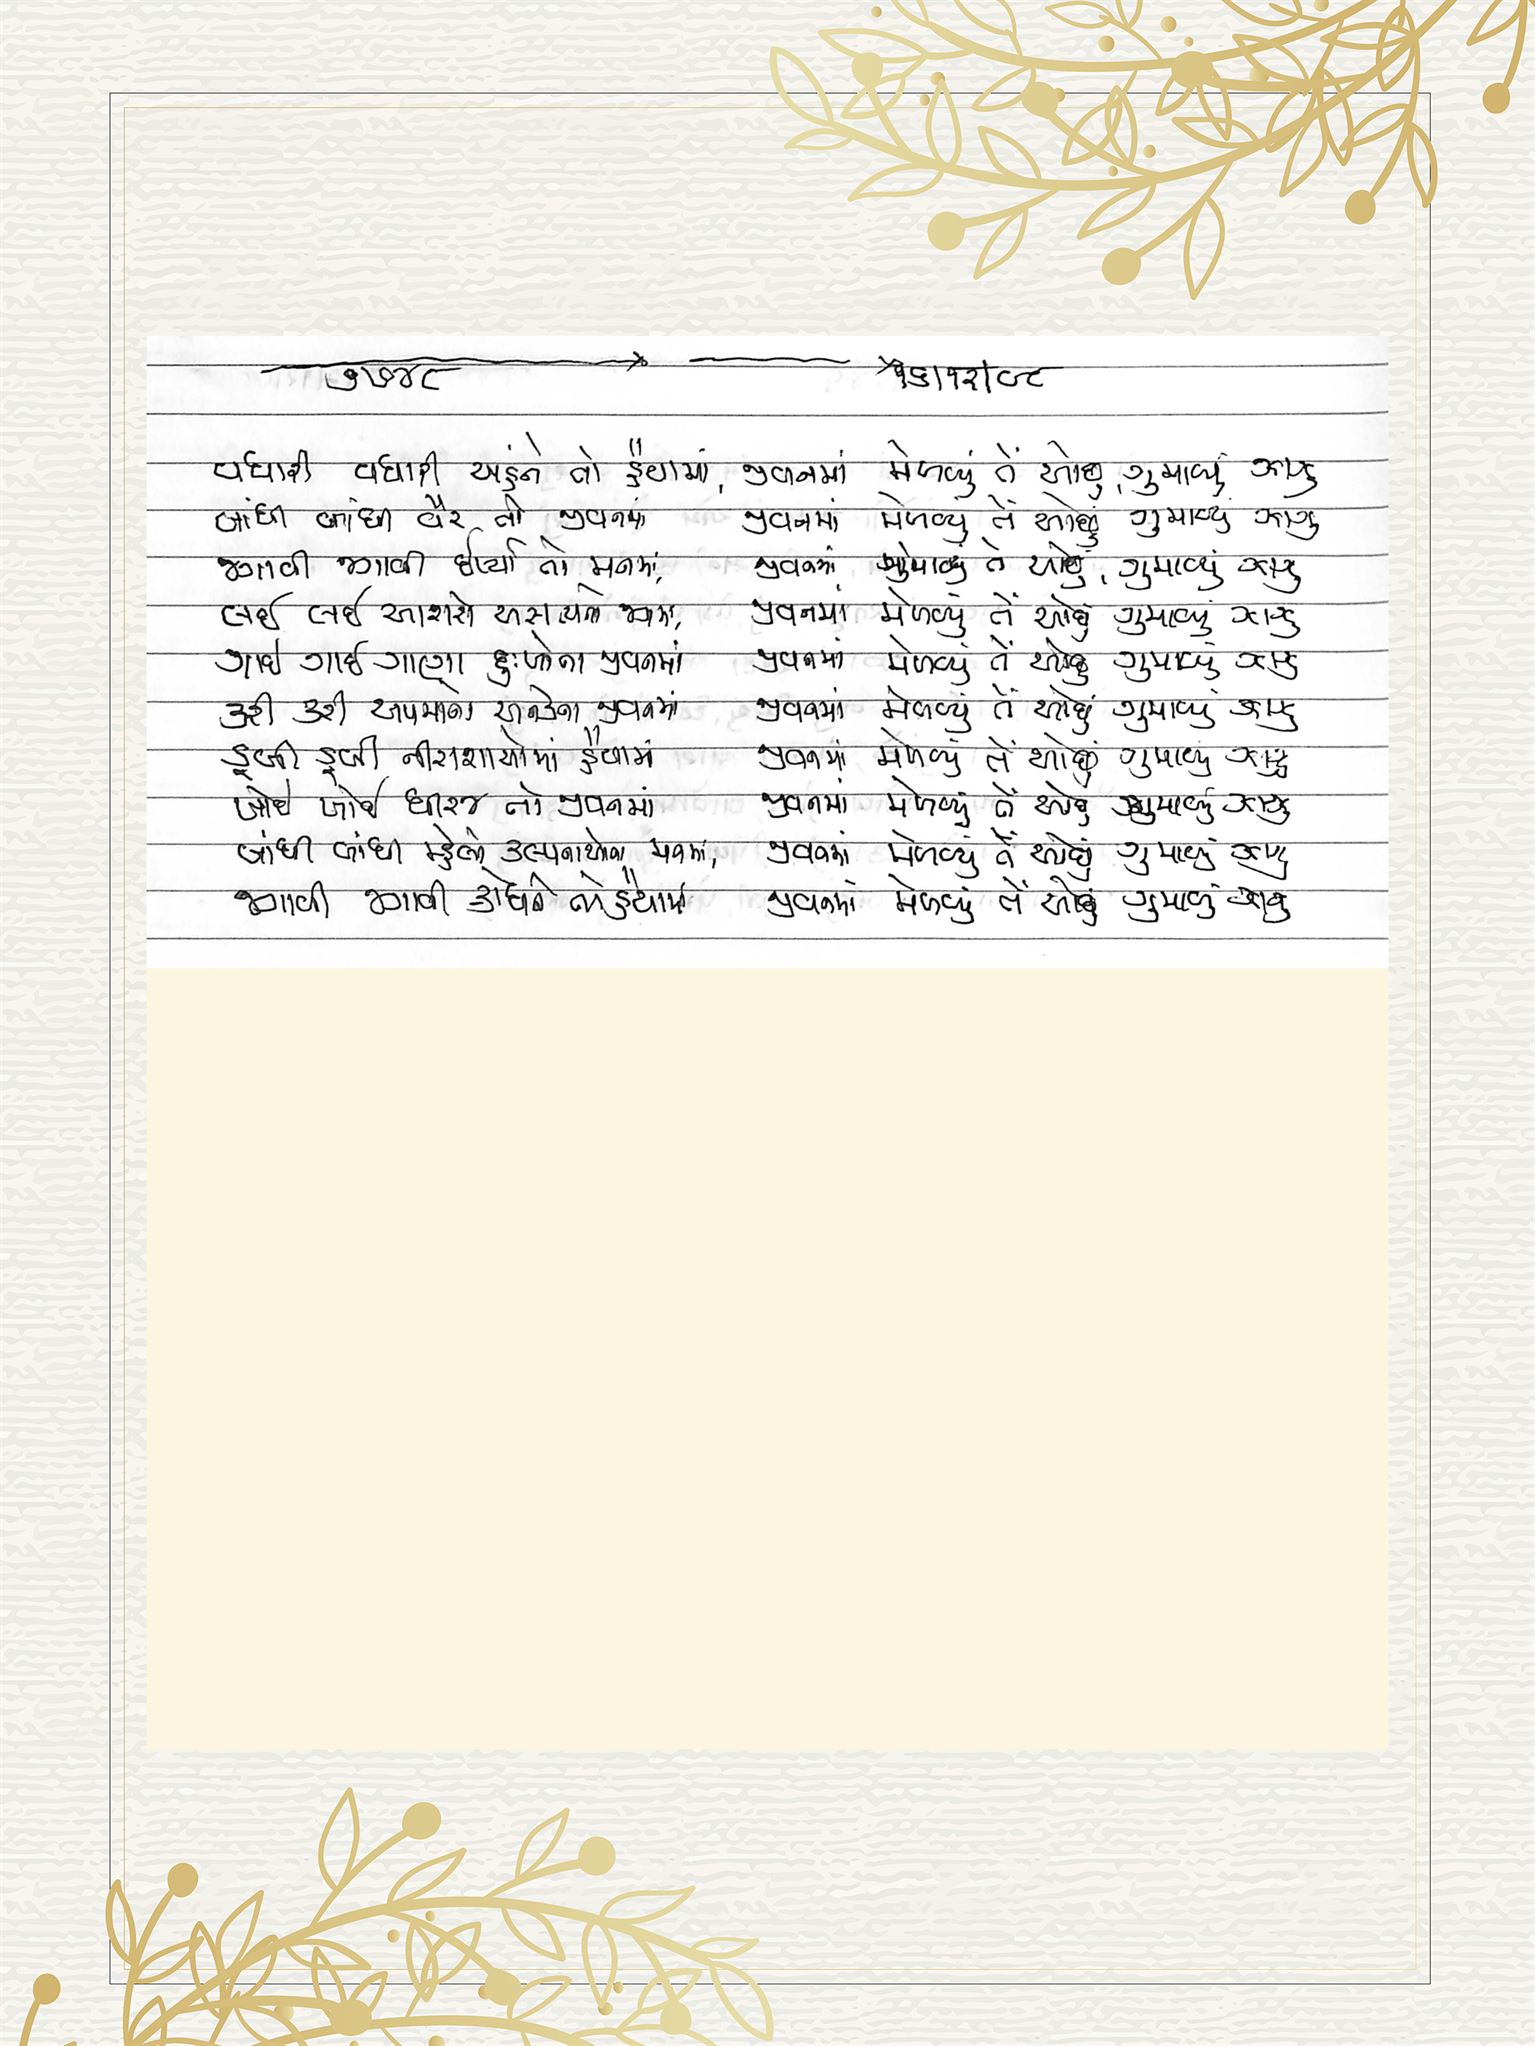 ૭૭૪૮ ૧૬/૧૨/૦૮
વધારી વધારી અહંને તો હૈયામાં, જીવનમાં મેળવ્યું તેં ઓછું, ગુમાવ્યું ઝાઝુ
બાંધી બાંધી વૈર તો જીવનમાં જીવનમાં મેળવ્યું તેં ઓછું ગુમાવ્યું ઝાઝુ
જગાવી જગાવી ઈર્ષ્યા તો મનમાં, જીવનમાં મેળવ્યું તેં ઓછું, ગુમાવ્યું ઝાઝુ
લઈ લઈ આશરો અસત્યનો જગમાં, જીવનમાં મેળવ્યું તેં ઓછું ગુમાવ્યું ઝાઝુ
ગાઈ ગાઈ ગાણા દુઃખોના જીવનમાં જીવનમાં મેળવ્યું તેં ઓછું ગુમાવ્યું ઝાઝુ
કરી કરી અપમાનો અનેકના જીવનમાં જીવનમાં મેળવ્યું તેં ઓછું ગુમાવ્યું ઝાઝુ
ડૂબી ડૂબી નીરાશાઓમાં હૈયામાં જીવનમાં મેળવ્યું તેં ઓછું ગુમાવ્યું ઝાઝુ
ખોઈ ખોઈ ધીરજ તો જીવનમાં જીવનમાં મેળવ્યું તેં ઓછું ગુમાવ્યું ઝાઝુ
બાંધી બાંધી મ્હેલો કલ્પનાઓના મનમાં, જીવનમાં મેળવ્યું તેં ઓછું ગુમાવ્યું ઝાઝુ
જગાવી જગાવી ક્રોધને તો હૈયામાં જીવનમાં મેળવ્યું તેં ઓછું ગુમાવ્યું ઝાઝુ